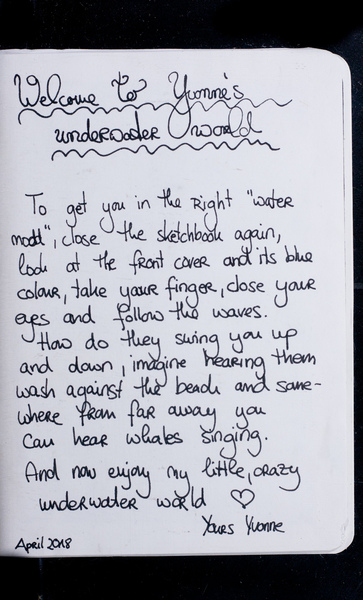 Welcome to Yvonne's
underwater world
To get you in the Right "water
modd", close the sketchbook again,
look at the front cover and its blue
colour, take your finger, close your
eyes and follow the waves.
How do they swing you up
and down, imagine hearing them
wash against the beach and some-
where from far away you
can hear whales singing.
And now enjoy my little, crazy
underwater world ♡
Yours Yvonne
April 2018